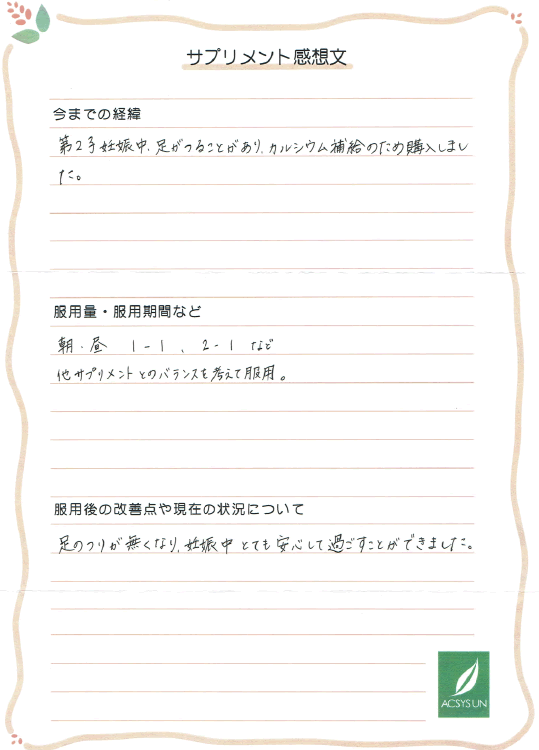 サプリメント感想文
今までの経緯
第2子妊娠中、足がつることがあり、カルシウム補給のため購入しまし
た。
服用量・服用期間など
朝・昼 1-1、2-1 など
他サプリメントとのバランスを考えて服用。
服用後の改善点や現在の状況について
足のつりが無くなり、妊娠中とても安心して過ごすことができました。
ACSYSUN